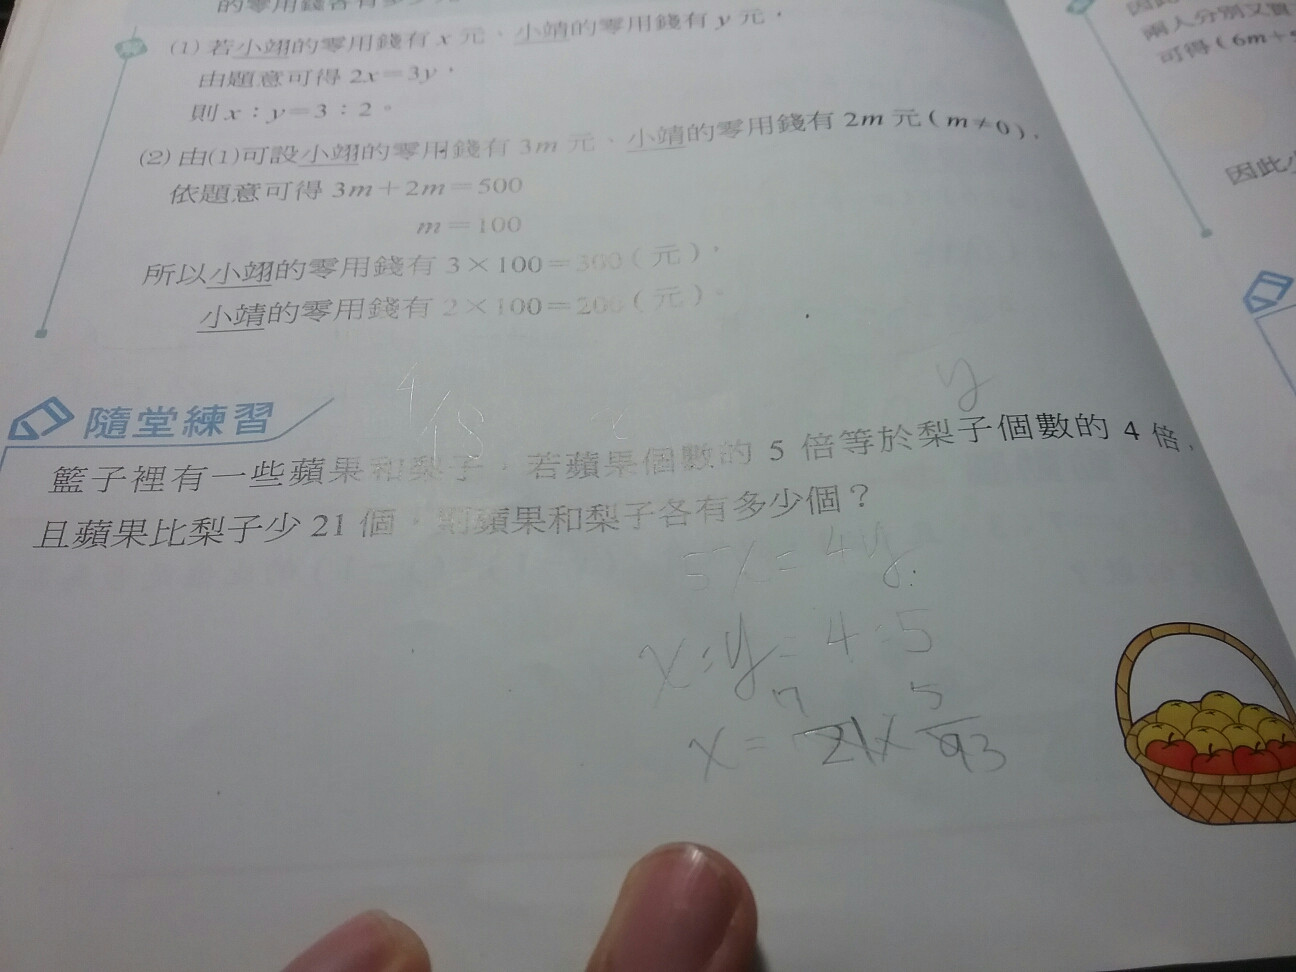 的零用錢各有多少
(1) 若小翊的零用錢有 x 元、小靖的零用錢有 y 元，
由題意可得 2x＝3y，
則 x：y＝3：2。
(2) 由(1)可設小翊的零用錢有 3m 元、小靖的零用錢有 2m 元( m≠0 )，
依題意可得 3m＋2m＝500
m＝100
所以小翊的零用錢有 3×100＝300（元），
小靖的零用錢有 2×100＝200（元）。
隨堂練習
4/18
y
籃子裡有一些蘋果和梨子，若蘋果個數的 5 倍等於梨子個數的 4 倍，
且蘋果比梨子少 21 個，則蘋果和梨子各有多少個？
5x=4y
x:y=4:5
7 5
x=21×
兩人分別又買
可得 ( 6m＋
因此